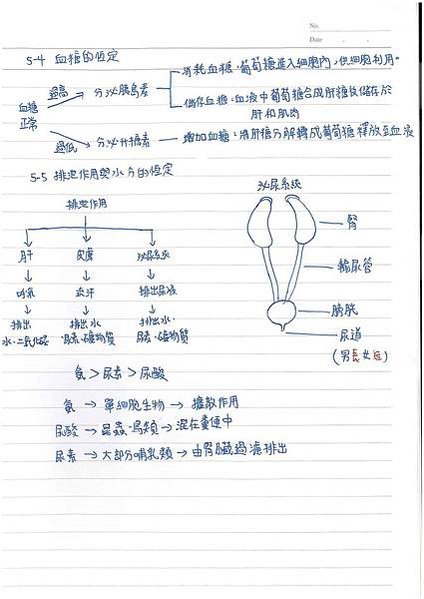 No.
Date
5-4 血糖的恆定
消耗血糖:葡萄糖進入細胞內,供細胞利用。
過高 分泌胰島素
儲存血糖:血液中葡萄糖合成肝糖後儲存於
肝和肌肉
血糖
正常
過低 分泌升糖素 增加血糖:將肝糖分解轉成葡萄糖釋放至血液
5-5 排泄作用與水分的恆定
排泄作用
肝 皮膚 泌尿系統
呼氣 流汗 排出尿液
排出 排出水 排出水、
水、二氧化碳 尿素、礦物質 尿素、礦物質
泌尿系統
腎
輸尿管
膀胱
尿道
(男長女短)
氨>尿素>尿酸
氨→單細胞生物→擴散作用
尿酸→昆蟲、鳥類→混在糞便中
尿素→大部分哺乳類→由腎臟過濾排出